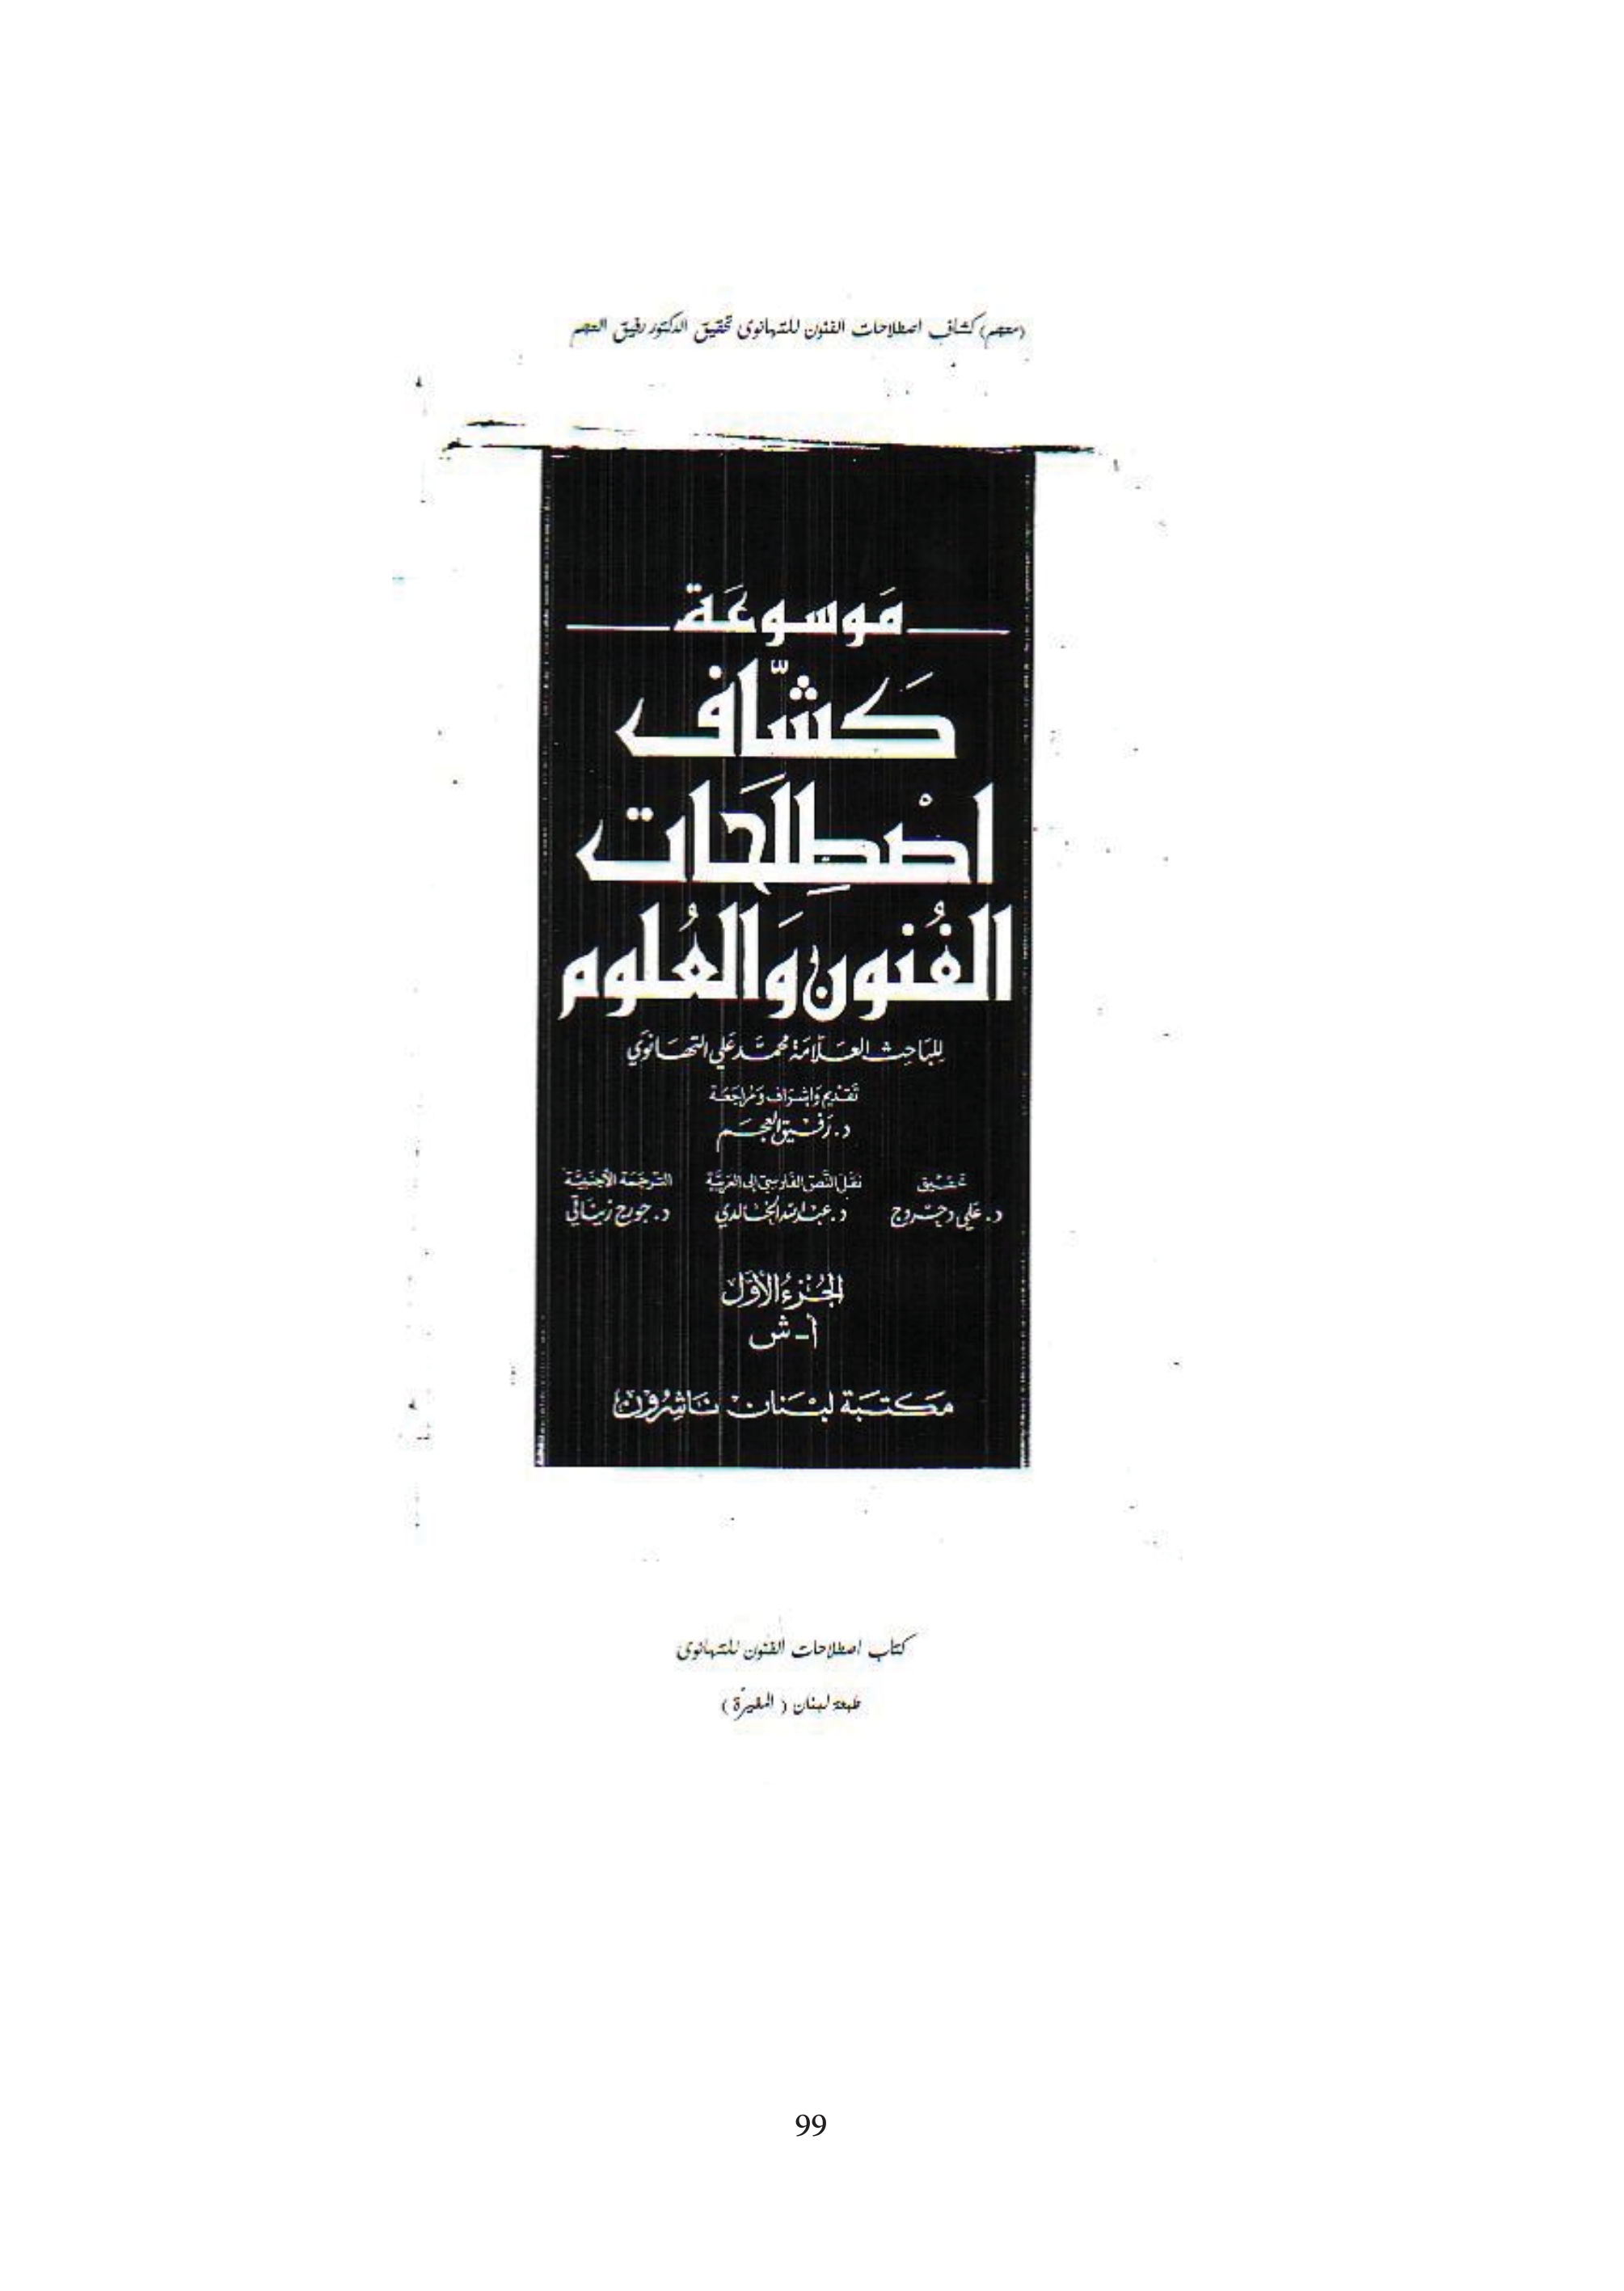 (معجم) كشاف اصطلاحات الفنون للتهانوى تحقيق الدكتور رفيق العجم
مَوسوعَة
كَشّاف
اصْطِلَحَات
الفُنون وَالعُلوم
لِلبَاحِث العَلّامَة محمَّد عَلي التهَانَوي
تَقديم وَإشرَاف وَمُرَاجَعَة
د. رَفيق العَجم
تحقيق
د. عَلي دحرُوج
نَقل النَّصّ الفَارسيّ إلى العَرَبيَّة
د. عبدالله الخَالدي
التّرجَمَة الأجنَبيَّة
د. جورج زينَاتي
الجُزء الأوّل
أ - ش
مَكتبَة لبنَان نَاشِرُون
كتاب اصطلاحات الفنون للتهانوى
طبعة لبنان ( )
99